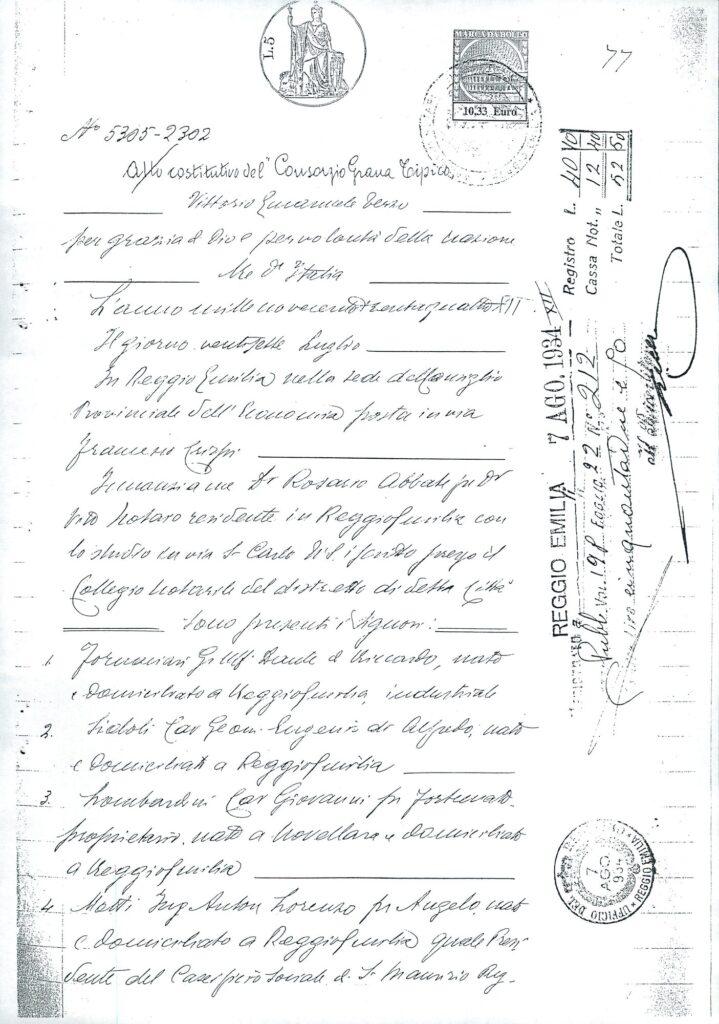 L.5
MARCA DA BOLLO
10,33 Euro
77
N° 5305-2302
Atto costitutivo del "Consorzio Grana Tipico"
Vittorio Emanuele Terzo
per grazia di Dio e per volontà della nazione
Re d'Italia
L'anno millenovecentotrentaquattro XII
Il giorno ventisette Luglio
In Reggio Emilia nella sede del Consiglio
Provinciale dell'Economia posta in via
Francesco Crispi
Innanzi a me Dr Rosario Abbate fu Dr
Vito Notaro residente in Reggio Emilia con
lo studio in via S. Carlo N. iscritto presso il
Collegio Notarile del distretto di detta Città
Sono presenti i Signori:
1. Dante di Riccardo, nato
e domiciliato a Reggio Emilia, industriale
2. Sidoli Cav Geom. Eugenio di Alfredo, nato
e domiciliato a Reggio Emilia
3. Lombardini Cav Giovanni fu Fortunato
proprietario, nato a Novellara e domiciliato
a Reggio Emilia
4. Motti Ing Anton Lorenzo fu Angelo, nato
e domiciliato a Reggio Emilia quale Presi-
dente del Caseificio Sociale di S. Maurizio Reg-
REGGIO EMILIA 7 AGO. 1934 XII
Pubbl. Vol. 198 Foglio 22 No 212
lire cinquantadue e 50
Registro L. 40 10
Cassa Not. " 12 40
Totale L. 52 50
UFFICIO DEL REGISTRO * REGGIO EMILIA *
7
AGO
934